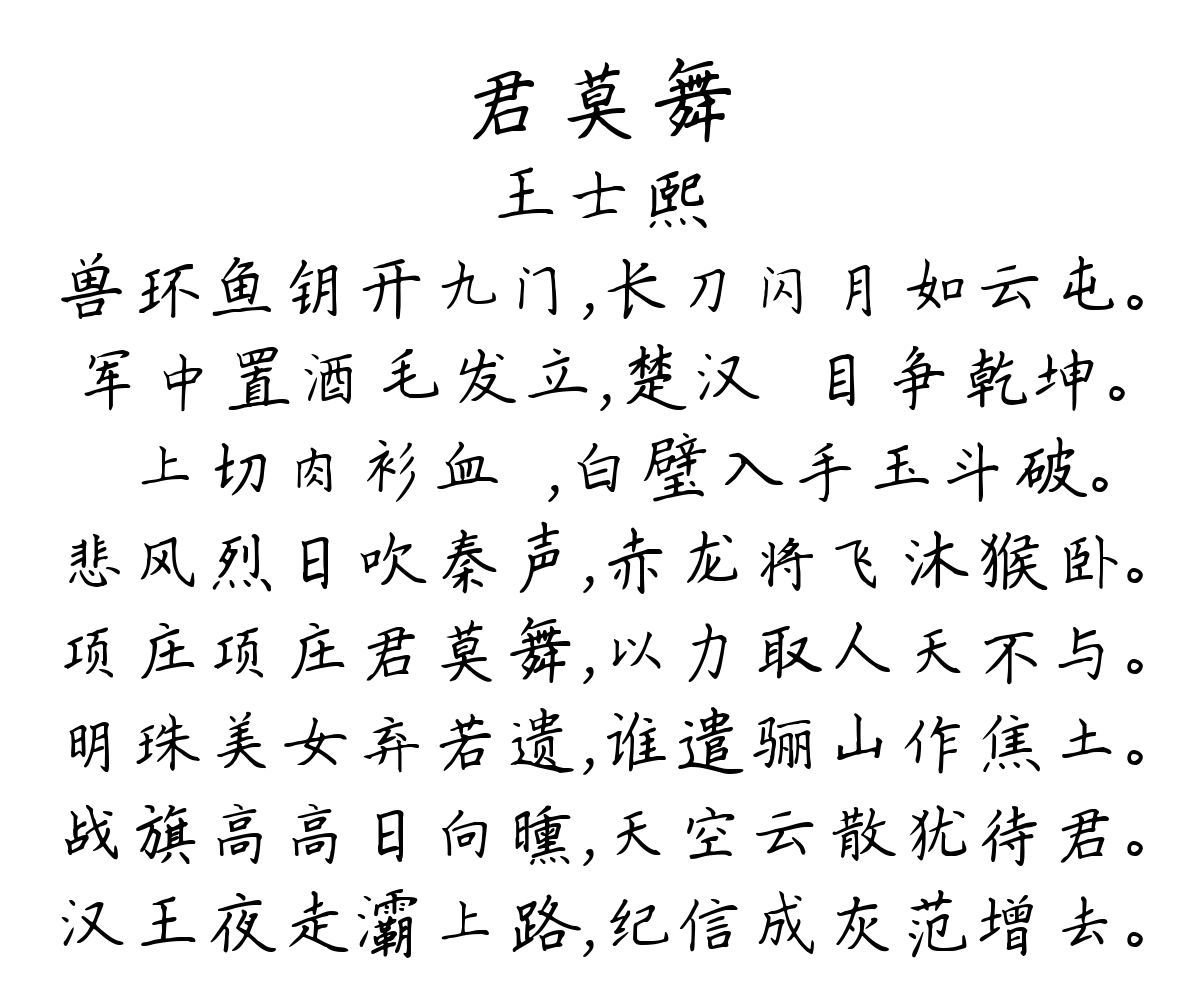 君莫舞
王士熙
兽环鱼钥开九门,长刀闪月如云屯。
军中置酒毛发立,楚汉 目争乾坤。
上切肉衫血 ,白璧入手玉斗破。
悲风烈日吹秦声,赤龙将飞沐猴卧。
项庄项庄君莫舞,以力取人天不与。
明珠美女弃若遗,谁遣骊山作焦土。
战旗高高日向曛,天空云散犹待君。
汉王夜走灞上路,纪信成灰范增去。